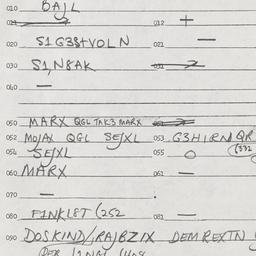 010 BAJL
012 +
020 S1G3S+VOLN 021 —
030 S1,N8AK 031
040 —
050 MARX QGL TAK3 MARX
052 MO/AX QGL SE/XL 053 G3H1RN QR
054 SE/XL 055 O (332
060 MARX 061 —
070 —
080 F1NKL8T (252 081 —
090 DOSKIND/RAJBZIX DEMREXTN